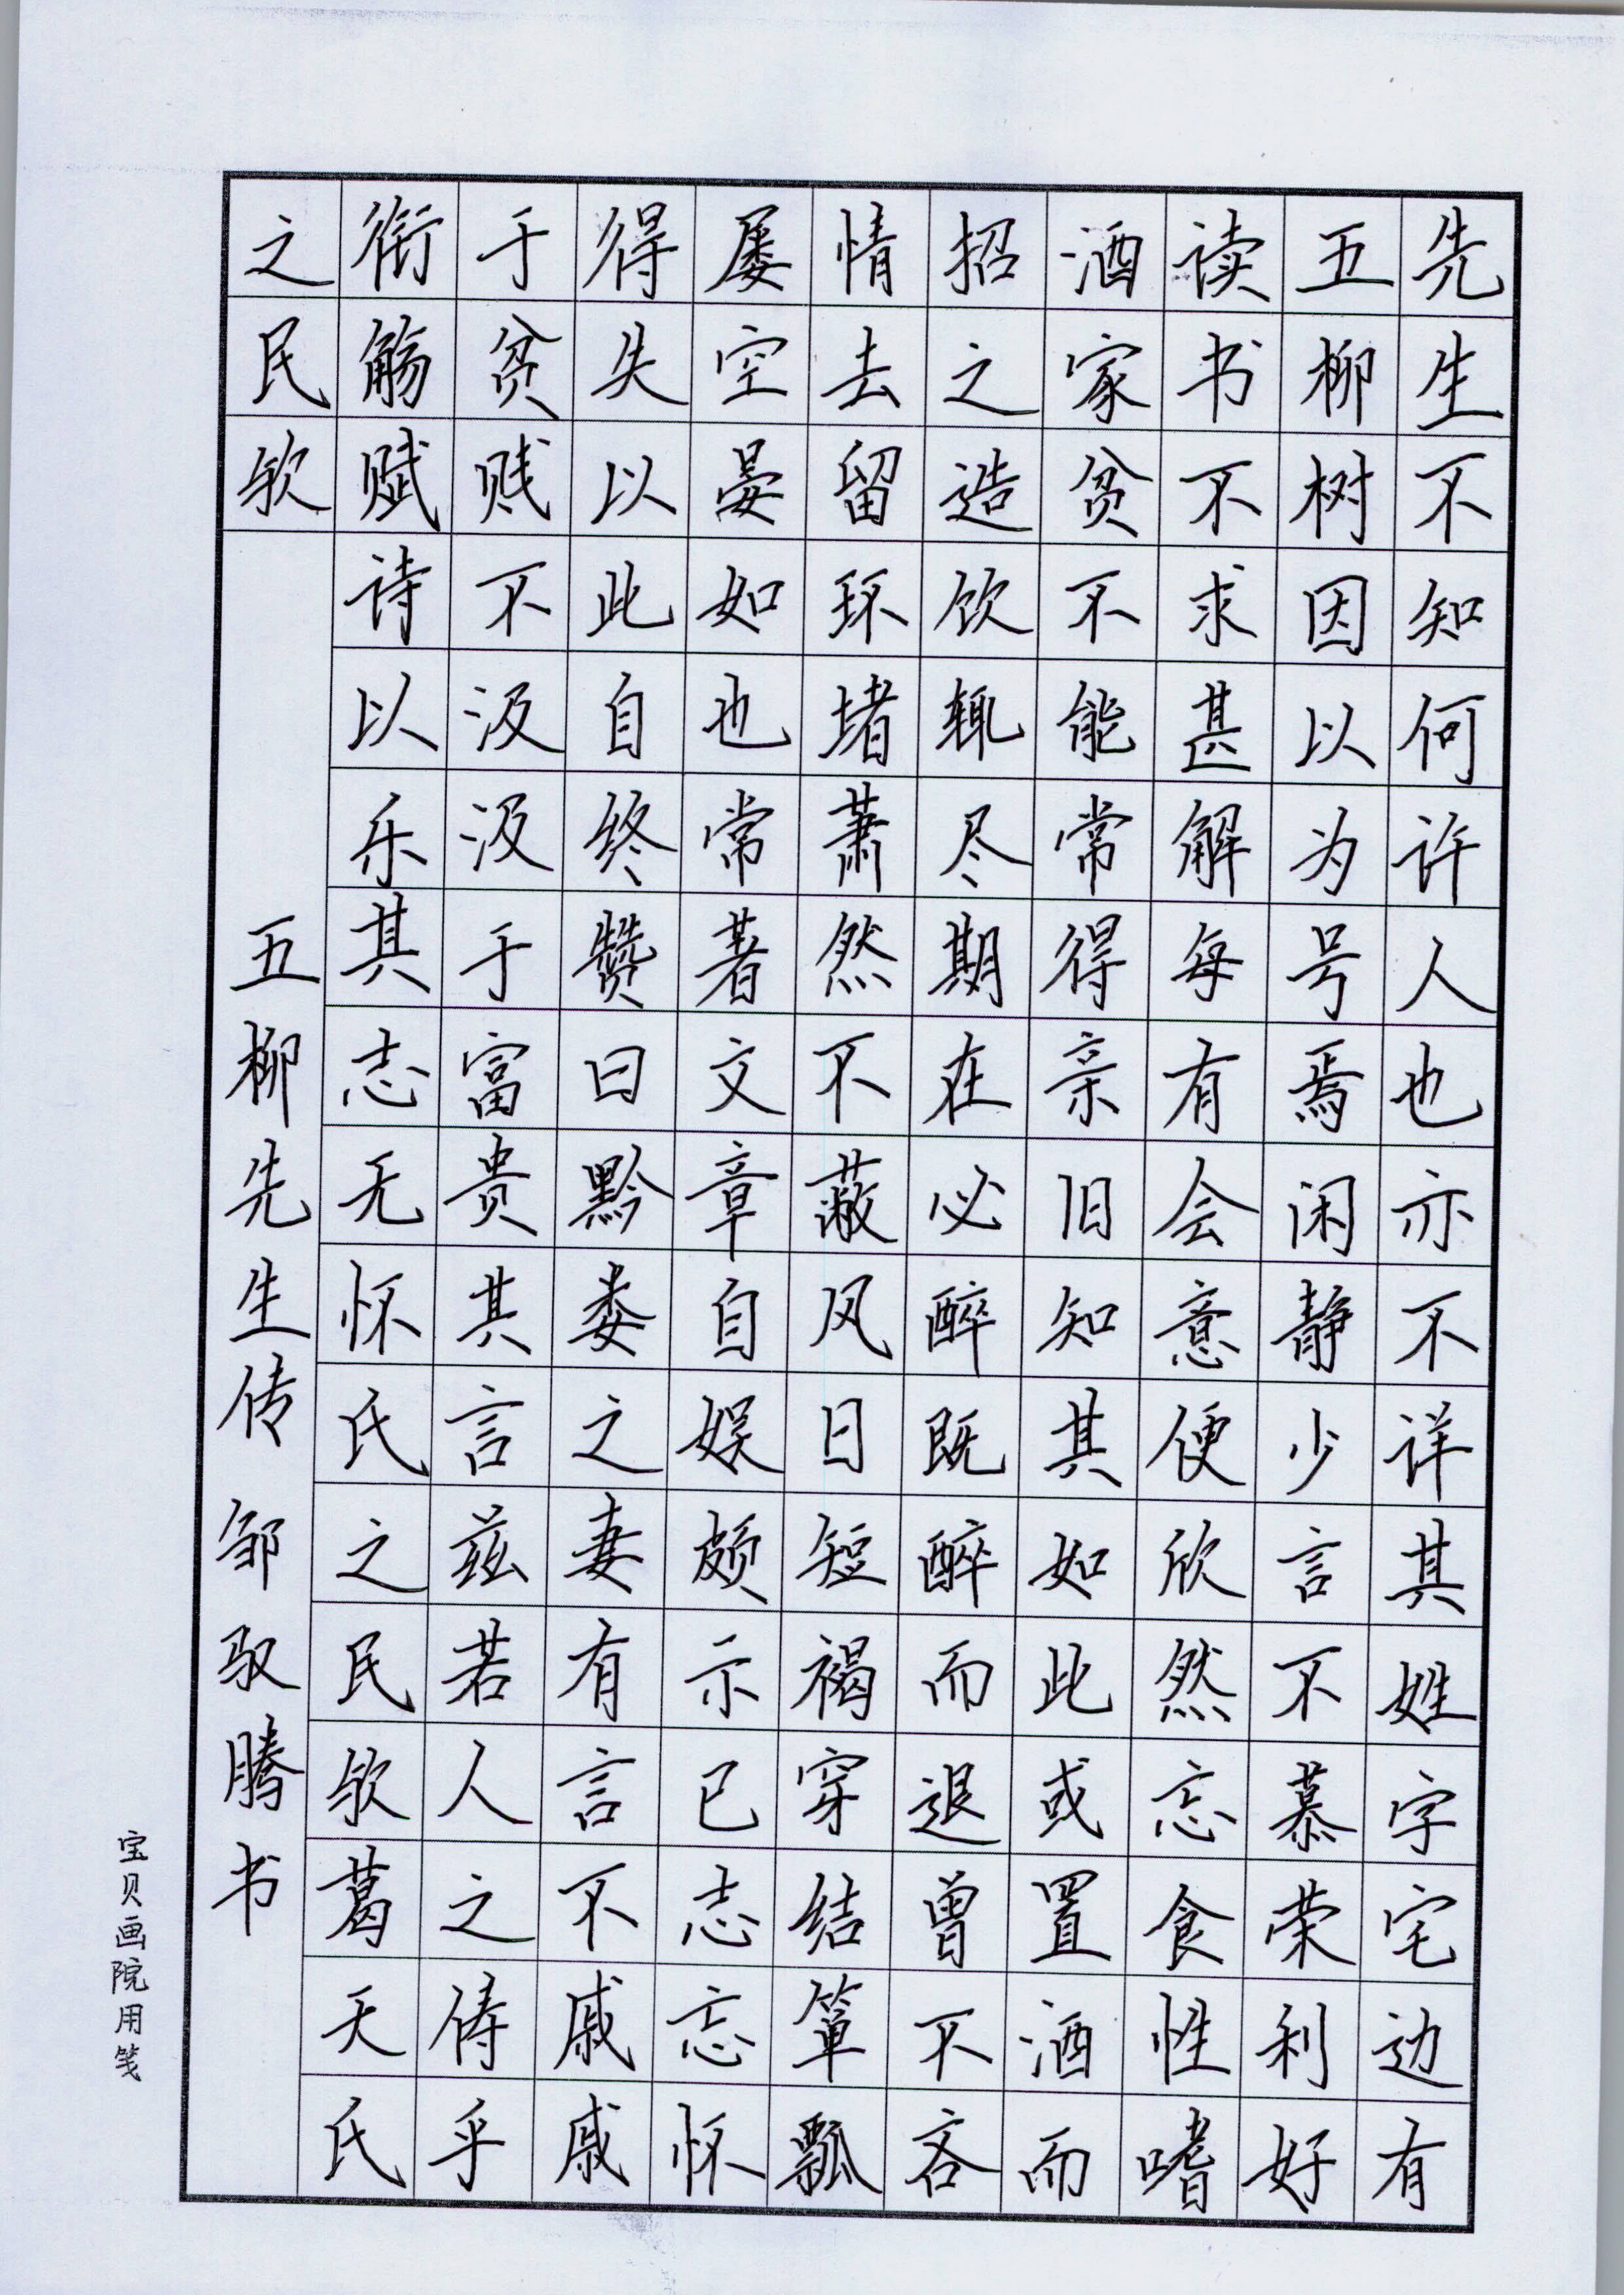 先生不知何许人也亦不详其姓字宅边有
五柳树因以为号焉闲静少言不慕荣利好
读书不求甚解每有会意便欣然忘食性嗜
酒家贫不能常得亲旧知其如此或置酒而
招之造饮辄尽期在必醉既醉而退曾不吝
情去留环堵萧然不蔽风日短褐穿结箪瓢
屡空晏如也常著文章自娱颇示己志忘怀
得失以此自终赞曰黔娄之妻有言不戚戚
于贫贱不汲汲于富贵其言兹若人之俦乎
衔觞赋诗以乐其志无怀氏之民欤葛天氏
之民欤 五柳先生传 邹驭腾书
宝贝画院用笺